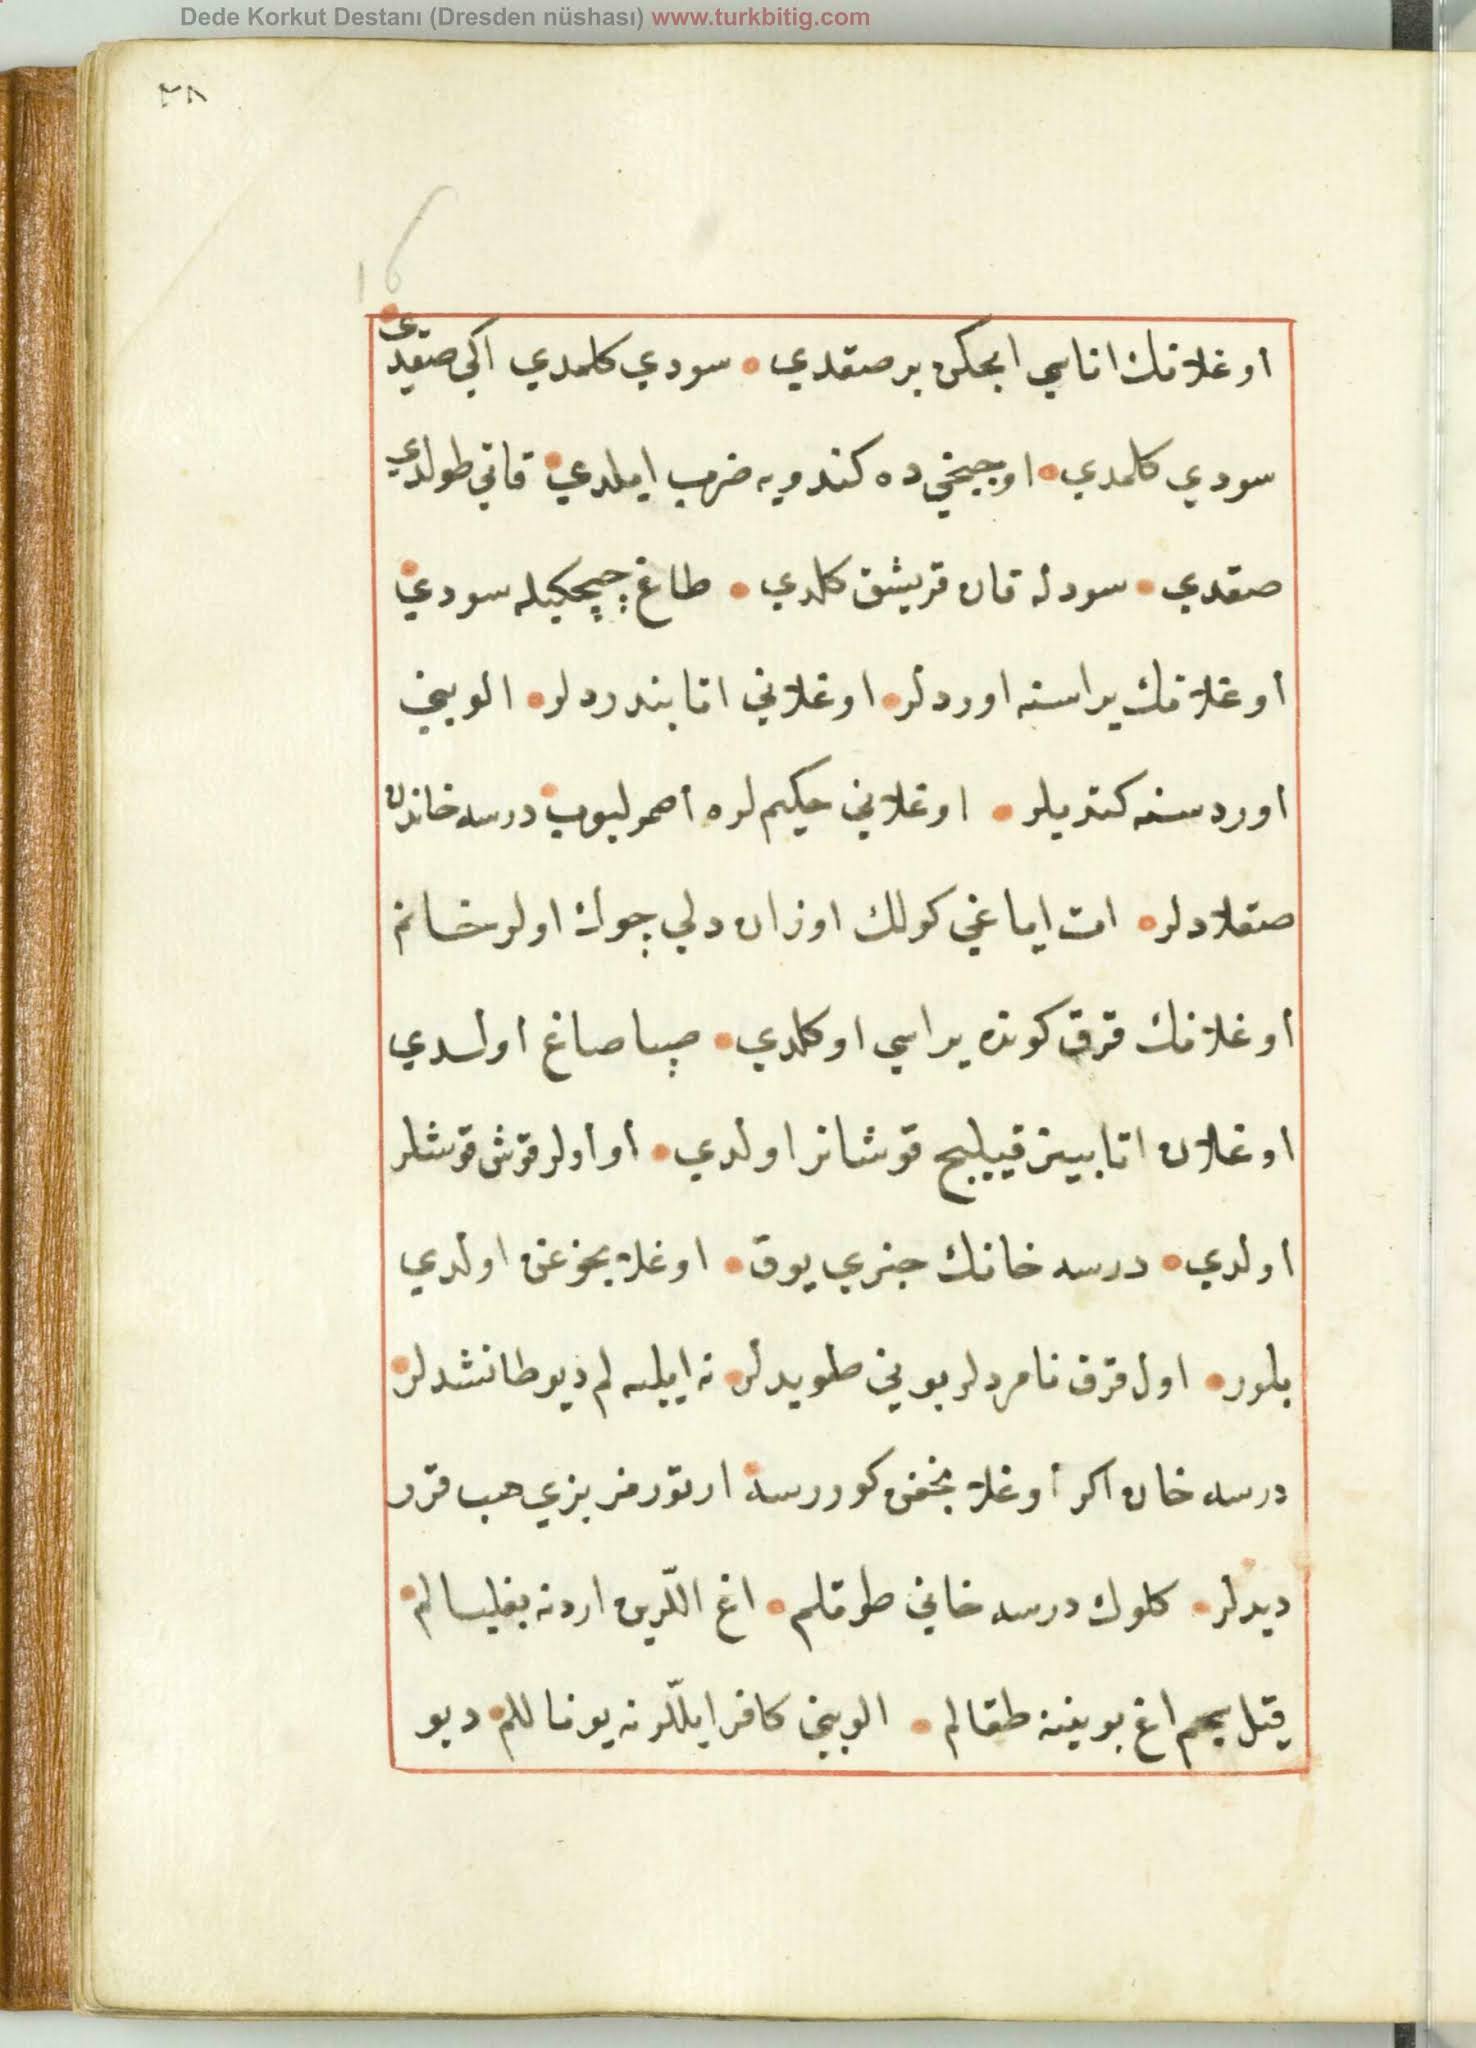 Dede Korkut Destanı (Dresden nüshası) www.turkbitig.com
٢٨
16
اوغلانك اناسي امجكن بر صقدي سودي كلمدي اكي صقدي
سودي كلمدي اوجنجي ده كندويه ضرب ايلدي قاني طولدي
صقدي سودله قان قريشق كلدي طاغ چيچكيله سودي
اوغلانك يراسنه اوردلر اوغلاني اتا بندردلر الوبني
اوردسنه كتديلر اوغلاني حكيملره اصمرليوب درسه خاندن
صقلادلر ات اياغي كولك اوزان دلي چوك اولر خانم
اوغلانك قرق كونده يراسي اوكلدي صپا صاغ اولدي
اوغلان اتا بينر قيليج قوشانر اولدي او اولر قوش قوشلر
اولدي درسه خانك خبري يوق اوغلانجوغن اولدي
بلور اول قرق نامردلر بوني طويدلر نه ايليه لم ديو طانشدلر
درسه خان اكر اوغلانجغن كوررسه ارتورمز بزي هب قرر
ديدلر كلوك درسه خاني طوتلم اغ اللرين اردنه بغليالم
قيل سجم اغ بوينينه طقالم الوبني كافر ايللرنه يونالللم ديو